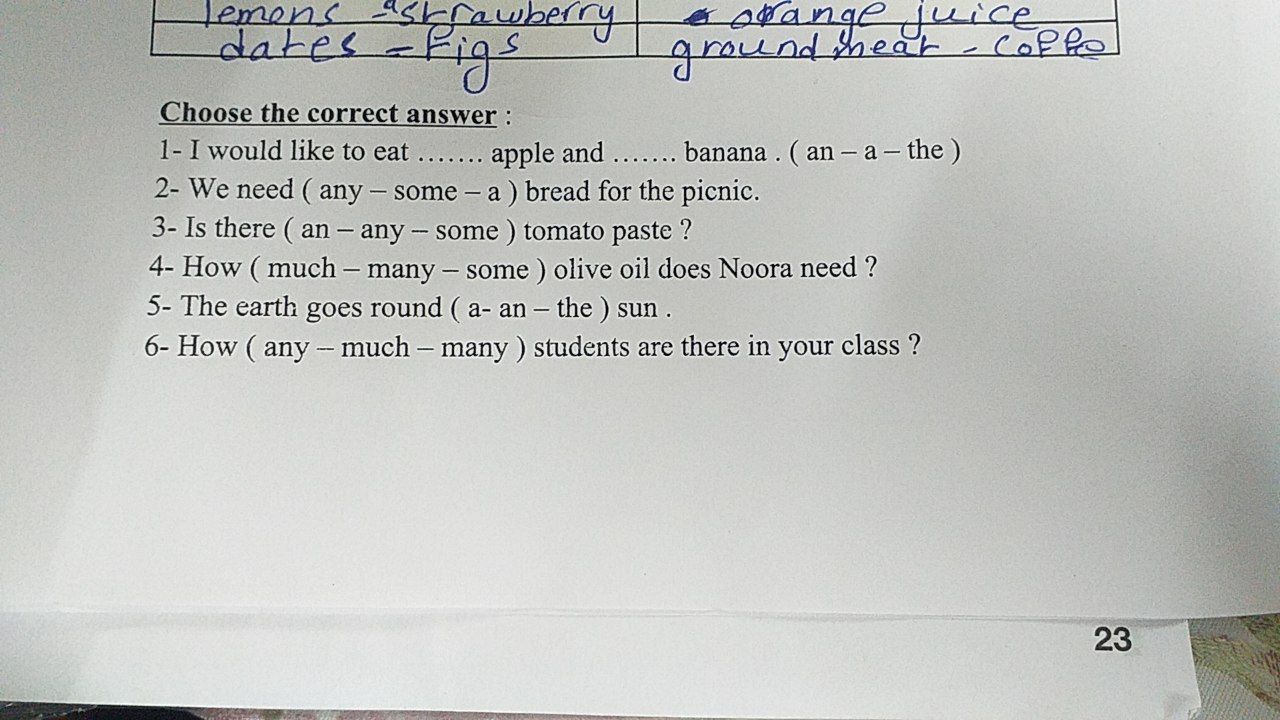 lemons - strawberry orange juice
dates - figs ground meat - Coffe
Choose the correct answer :
1- I would like to eat ....... apple and ....... banana . ( an – a – the )
2- We need ( any – some – a ) bread for the picnic.
3- Is there ( an – any – some ) tomato paste ?
4- How ( much – many – some ) olive oil does Noora need ?
5- The earth goes round ( a- an – the ) sun .
6- How ( any – much – many ) students are there in your class ?
23